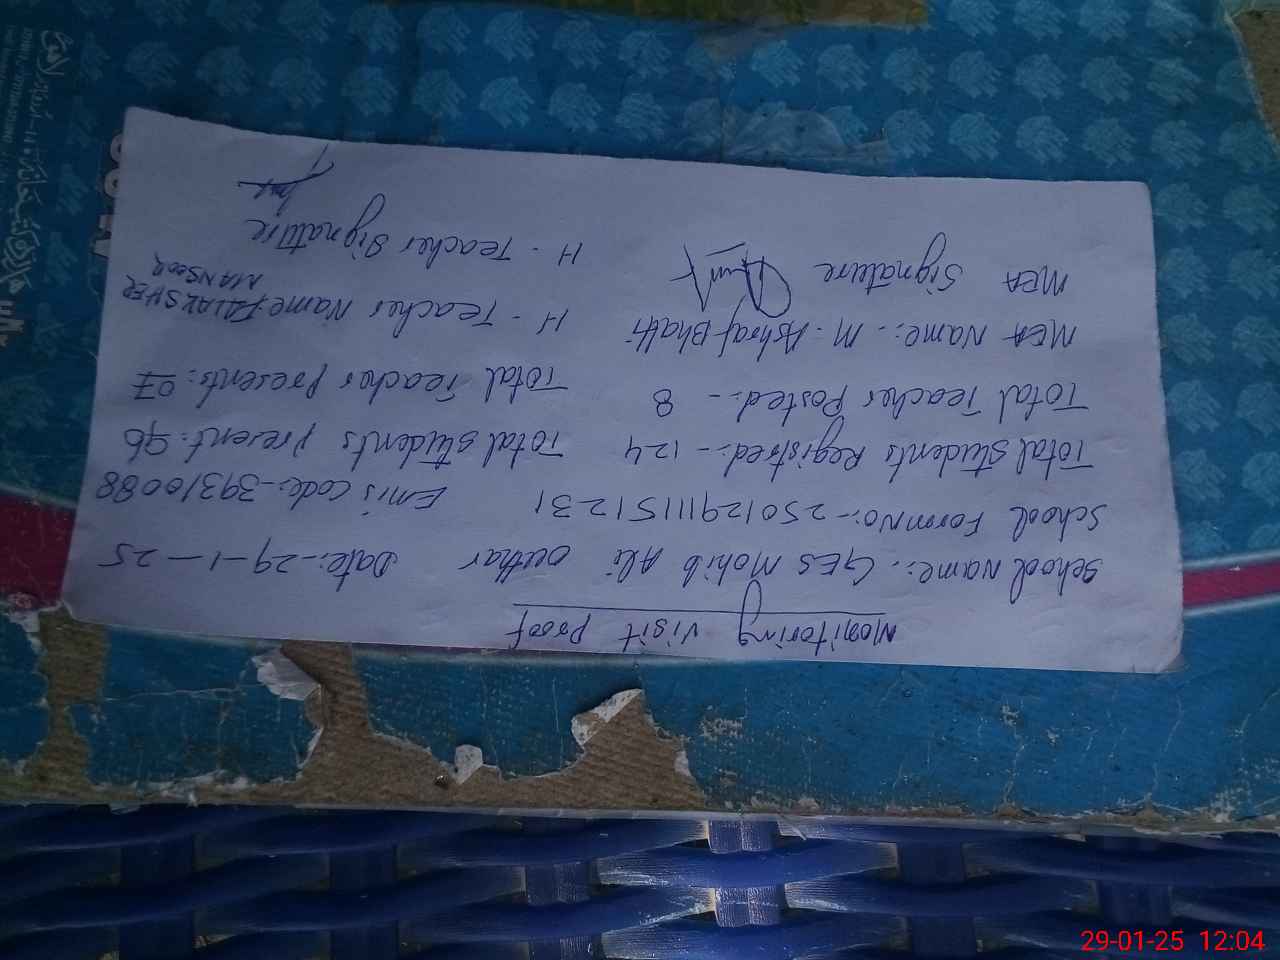 Monitoring Visit Proof
School Name:. GES Mohib Ali outhar Date:-29-1-25
School Form No:- 25012911151231 Emis code:-39310088
Total Students Registred:- 124 Total students present: 96
Total Teacher Posted:- 8 Total Teacher presents: 07
MEA Name:. M. Ashraf Bhatti H - Teacher Name FALAK SHER MANSOOR
MEA Signature H - Teacher Signature
29-01-25 12:04